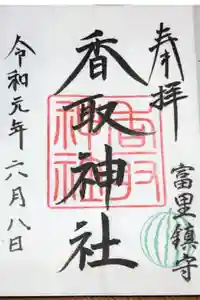 奉拝
富里鎮守
香取神社
令和元年六月八日